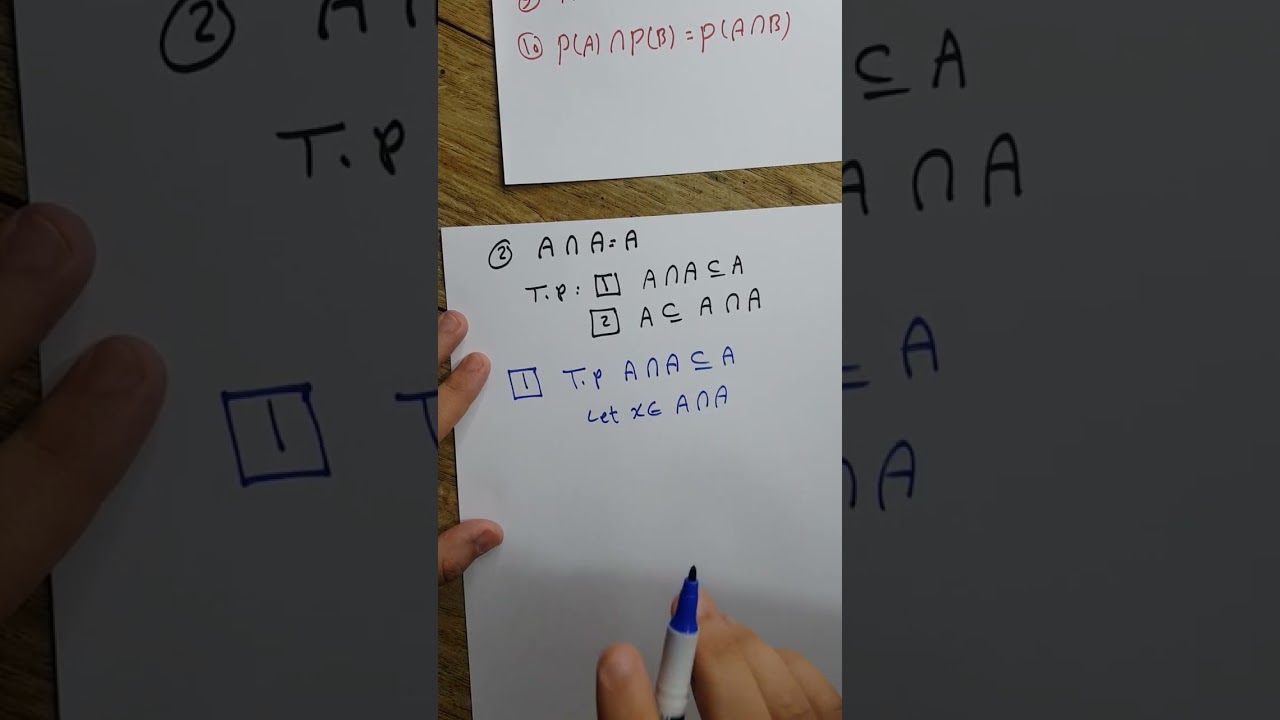 ⑩ P(A)∩P(B)=P(A∩B)
② A∩A=A
T.P: [1] A∩A⊆A
[2] A⊆A∩A
[1] T.P A∩A⊆A
Let x∈A∩A